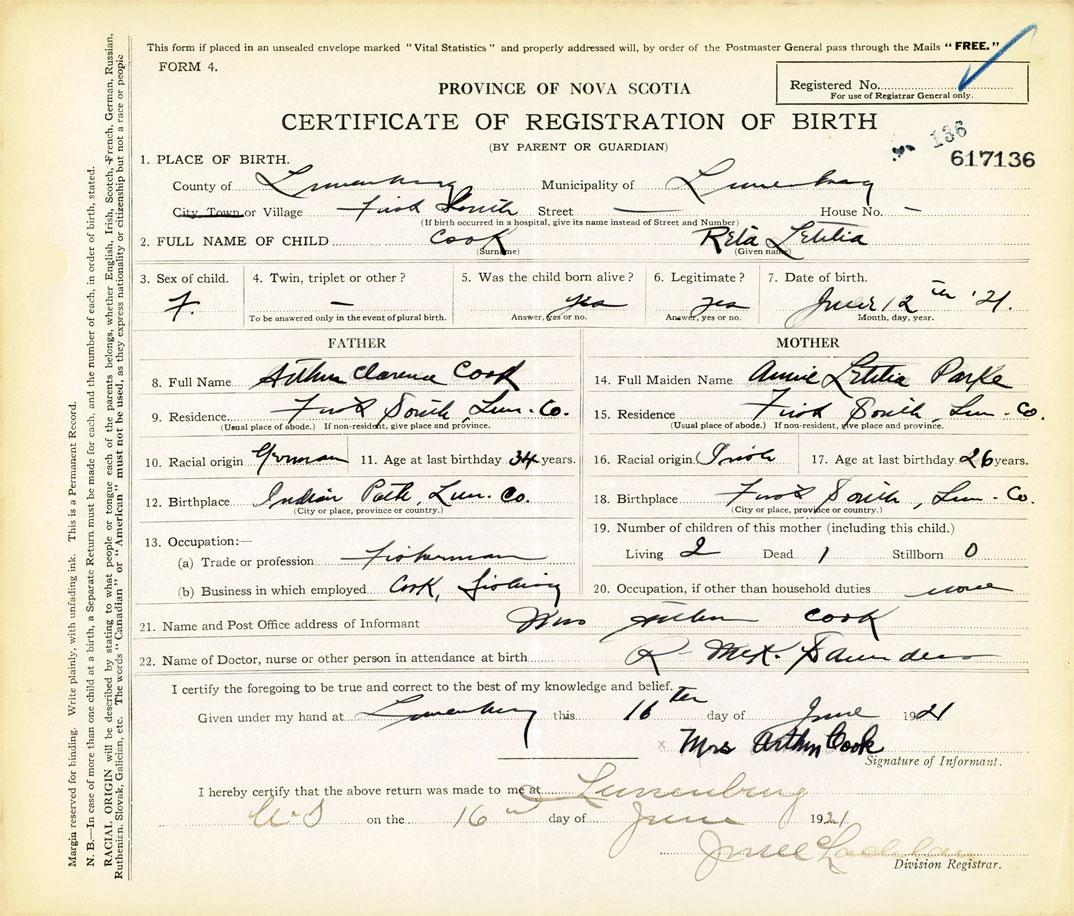 This form if placed in an unsealed envelope marked "Vital Statistics" and properly addressed will, by order of the Postmaster General pass through the Mails "FREE."
FORM 4.
Registered No.
For use of Registrar General only.
PROVINCE OF NOVA SCOTIA
CERTIFICATE OF REGISTRATION OF BIRTH
(BY PARENT OR GUARDIAN)
136
617136
1. PLACE OF BIRTH.
County of Lunenburg Municipality of Lunenburg
City, Town or Village First South Street — House No. —
(If birth occurred in a hospital, give its name instead of Street and Number)
2. FULL NAME OF CHILD Cook Reta Letitia
(Surname) (Given name)
3. Sex of child. 4. Twin, triplet or other? 5. Was the child born alive? 6. Legitimate? 7. Date of birth.
F. — yes yes June 12th '21.
To be answered only in the event of plural birth. Answer, yes or no. Answer, yes or no. Month, day, year.
FATHER
8. Full Name Arthur Clarence Cook
9. Residence First South, Lun. Co.
(Usual place of abode.) If non-resident, give place and province.
10. Racial origin German 11. Age at last birthday 34 years.
12. Birthplace Indian Path, Lun. Co.
(City or place, province or country.)
13. Occupation:—
(a) Trade or profession Fisherman
(b) Business in which employed Cook, fishing
MOTHER
14. Full Maiden Name Annie Letitia Parke
15. Residence First South, Lun. Co.
(Usual place of abode.) If non-resident, give place and province.
16. Racial origin Irish 17. Age at last birthday 26 years.
18. Birthplace First South, Lun. Co.
(City or place, province or country.)
19. Number of children of this mother (including this child.)
Living 2 Dead 1 Stillborn 0
20. Occupation, if other than household duties none
21. Name and Post Office address of Informant Mrs Arthur Cook
22. Name of Doctor, nurse or other person in attendance at birth R McK. Saunders
I certify the foregoing to be true and correct to the best of my knowledge and belief.
Given under my hand at Lunenburg this 16th day of June 1921
x Mrs Arthur Cook
Signature of Informant.
I hereby certify that the above return was made to me at Lunenburg
N.S on the 16th day of June 1921
Division Registrar.
Margin reserved for binding. Write plainly, with unfading ink. This is a Permanent Record.
N. B.—In case of more than one child at a birth, a Separate Return must be made for each, and the number of each, in order of birth, stated.
RACIAL ORIGIN will be described by stating to what people or tongue each of the parents belongs, whether English, Irish, Scotch, French, German, Russian,
Ruthenian, Slovak, Galician, etc. The words "Canadian" or "American" must not be used, as they express nationality or citizenship but not a race or people